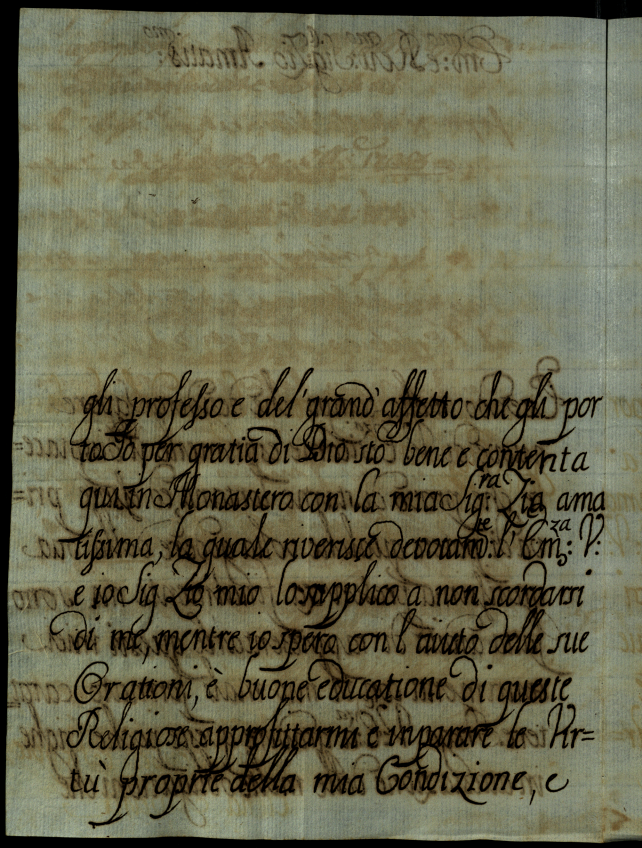 gli professo e del'grand'affetto che gli por
to Io per gratia di Dio sto bene e contenta
qui in Monastero con la mia Sig:ra Zia ama
tissima, la quale riverisce devotam:te l'Em:za V:
e io Sig Zio mio lo supplico a non scordarsi
di me, mentre io spero con l'aiuto delle sue
Orationi, è buone educatione di queste
Religiose approfittarmi e inparare le Vir=
tù proprie della mia Condizione, e